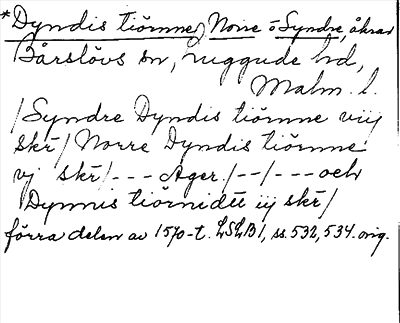 *Dyndis tiörnne, Norre o Syndre, åkrar
Bårslövs sn, Luggude hd,
Malm. l.
/Syndre Dyndis tiörnne viij
skr̃/ Norre Dyndis tiörnne
vj skr̃/--- Ager./--/--- och
Dynnis tiörnidtt iij skr̃/
förra delen av 1570-t. LSLB1, ss. 532, 534. orig.